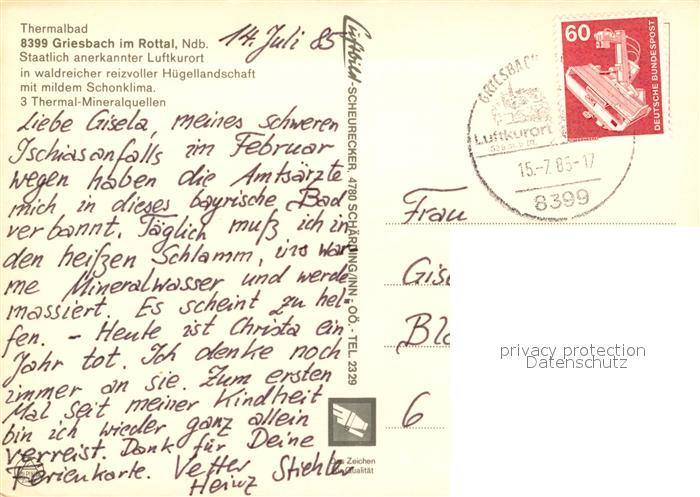 Thermalbad
8399 Griesbach im Rottal, Ndb.
Staatlich anerkannter Luftkurort
in waldreicher reizvoller Hügellandschaft
mit mildem Schonklima.
3 Thermal-Mineralquellen
14. Juli 85
Liebe Gisela, meines schweren
Ischiasanfalls im Februar
wegen haben die Amtsärzte
mich in dieses bayrische Bad
verbannt. Täglich muß ich in
den heißen Schlamm, ins war
me Mineralwasser und werde
massiert. Es scheint zu hel-
fen. - Heute ist Christa ein
Jahr tot. Ich denke noch
immer an sie. Zum ersten
Mal seit meiner Kindheit
bin ich wieder ganz allein
verreist. Dank für Deine
Ferienkarte. Vetter
Heinz Stiehler
Luftbild-SCHEURECKER, 4780 SCHÄRDING/INN, OÖ. - TEL. 2329
Das Zeichen
der Qualität
GRIESBACH
Luftkurort
15.-7.85-17
8399
60
DEUTSCHE BUNDESPOST
Frau
Gis
Bl
6
privacy protection
Datenschutz